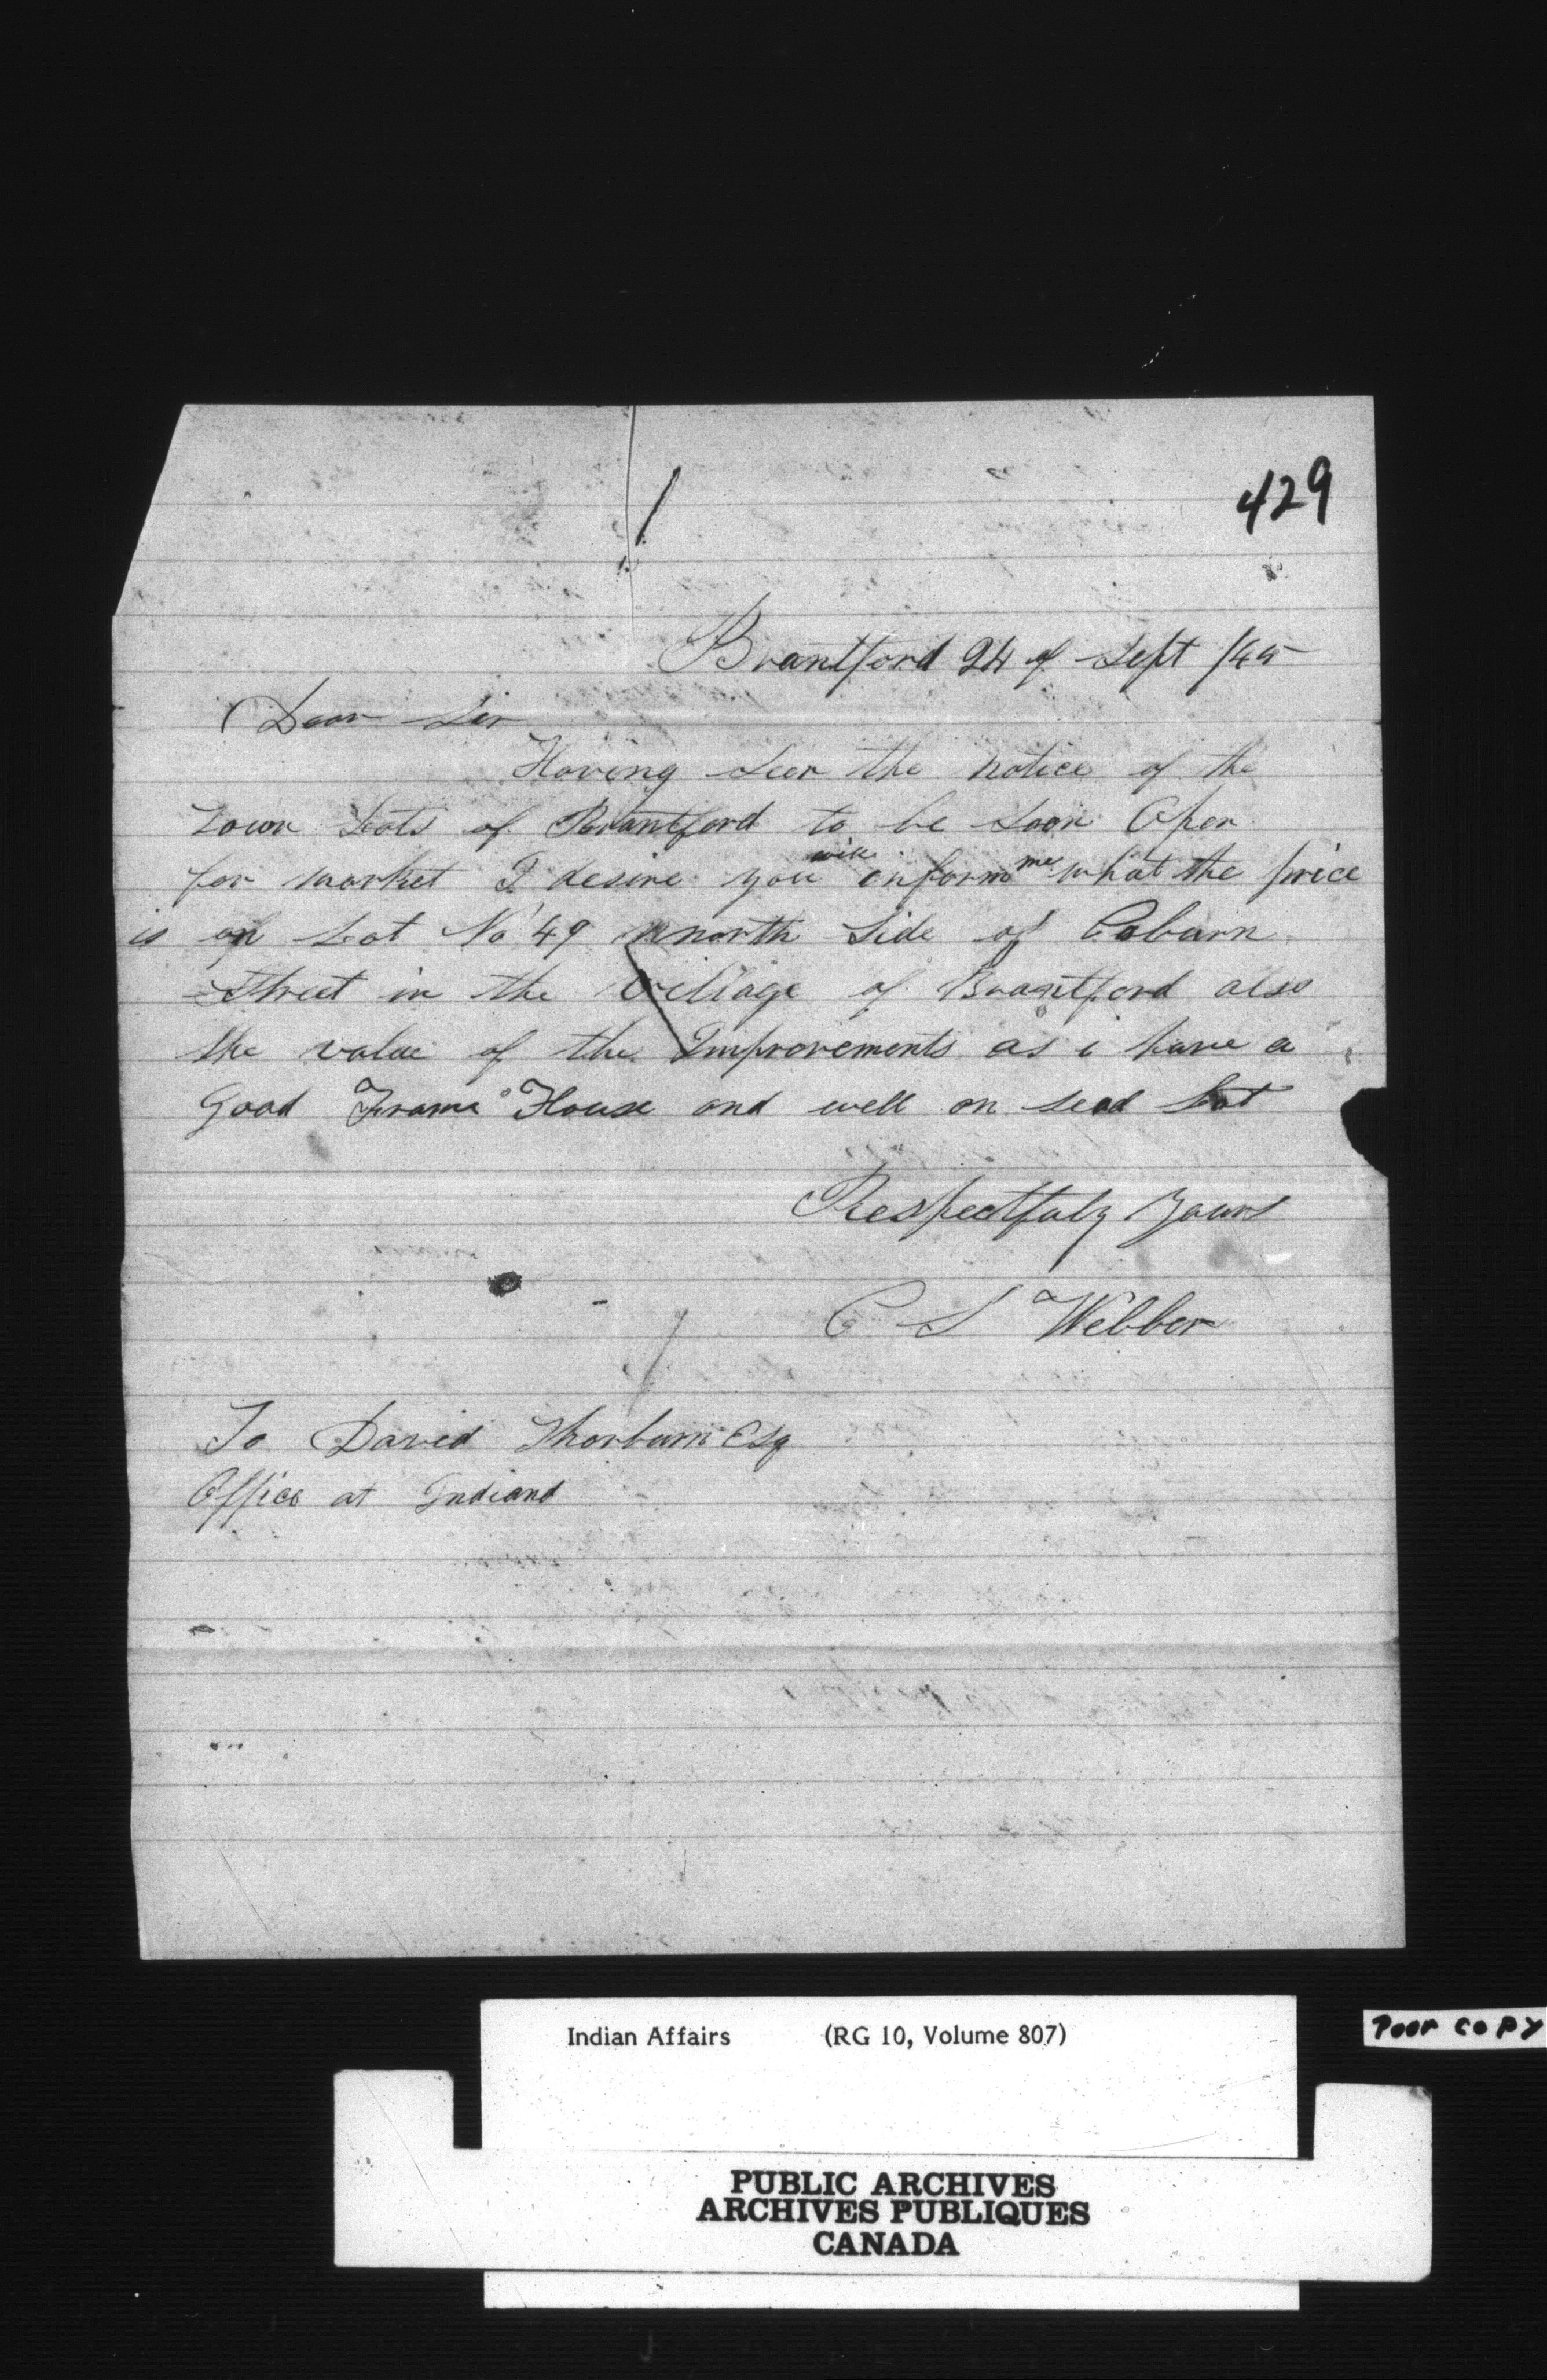 429
Brantford 24 of Sept /45
Dear Sir
Having Seen the notice of the
Town Lots of Brantford to be Soon Open
for market I desire you will inform me what the price
is of Lot No 49 north Side of Coburn
Street in the Village of Brantford also
the value of the Improvements as i have a
Good Frame House and well on sead Lot
Respectfuly Yours
C S Webber
To David Thorburn Esq
Office at Indiana
Indian Affairs (RG 10, Volume 807)
Poor copy
PUBLIC ARCHIVES
ARCHIVES PUBLIQUES
CANADA